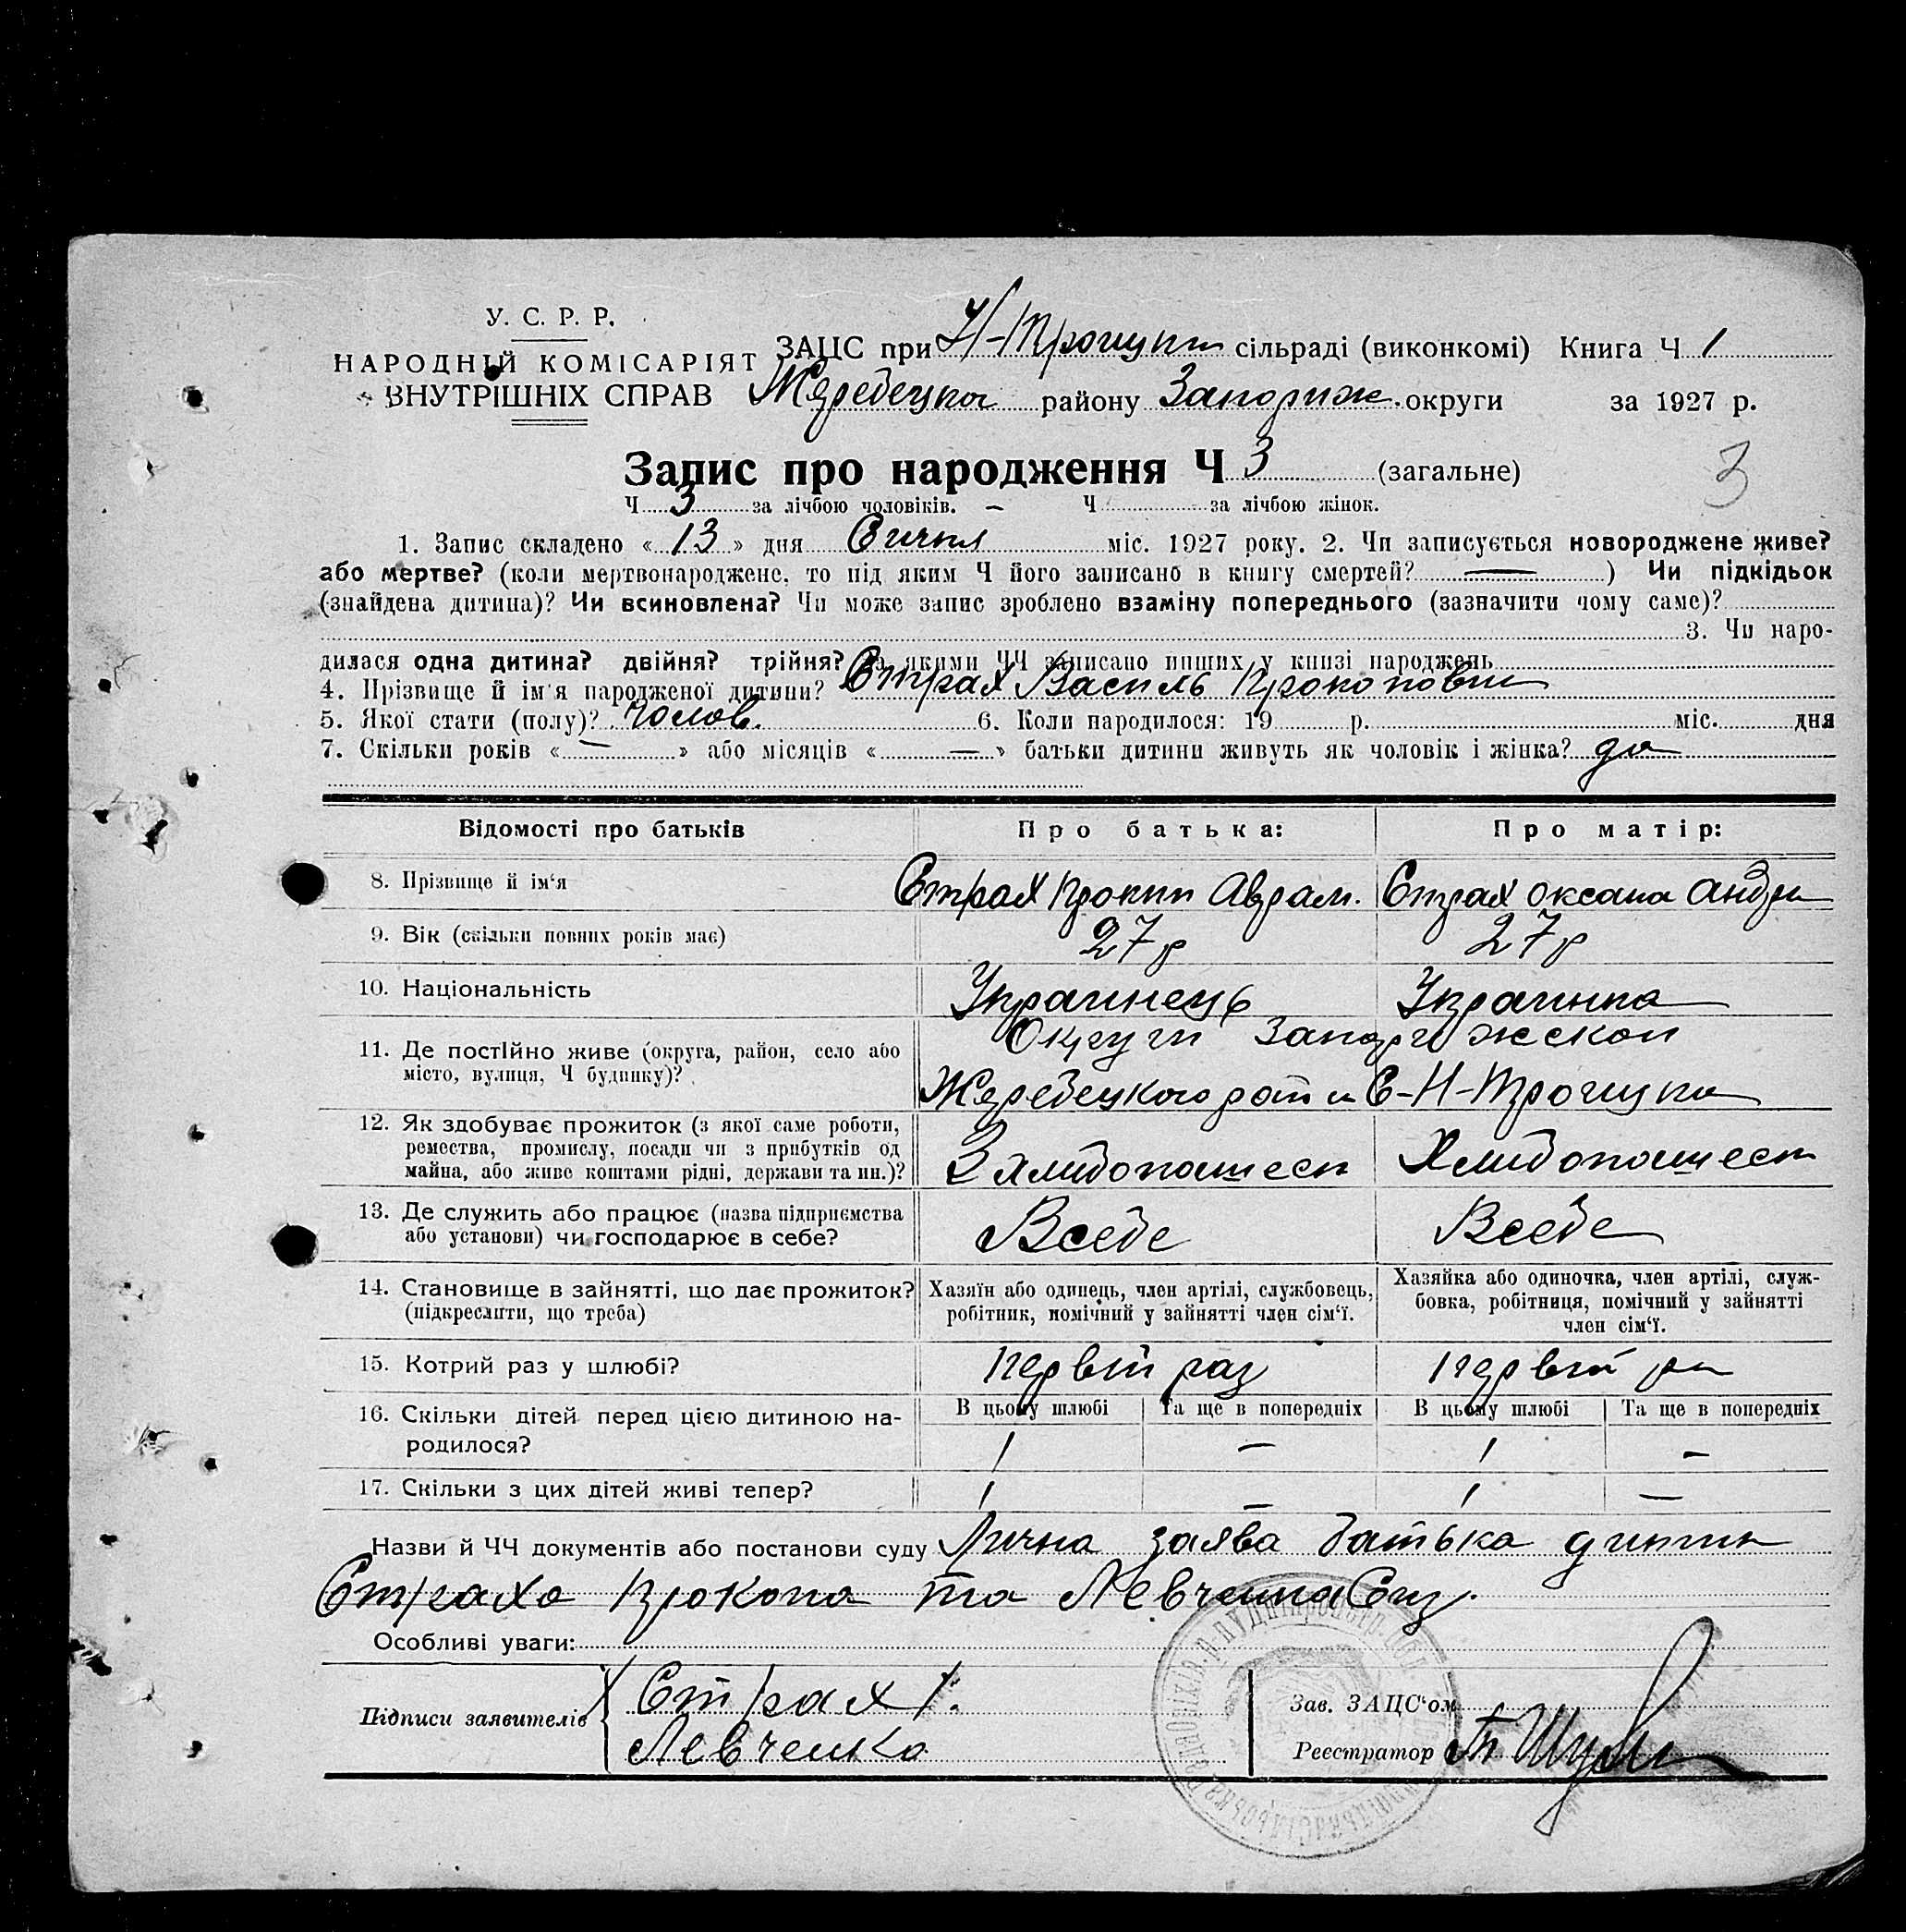 У. С. Р. Р.
НАРОДНІЙ КОМІСАРІЯТ
ВНУТРІШНІХ СПРАВ
ЗАЦС при Н-Троицкі сільраді (виконкомі) Книга Ч 1
Жеребецкого району Запориж. округи за 1927 р.
Запис про народження Ч 3 (загальне)
3
Ч 3 за лічбою чоловіків. — Ч за лічбою жінок.
1. Запис складено « 13 » дня Січня міс. 1927 року. 2. Чи записується новороджене живе?
або мертве? (коли мертвонароджене, то під яким Ч його записано в книгу смертей? — ) Чи підкідьок
(знайдена дитина)? Чи всиновлена? Чи може запис зроблено взаміну попереднього (зазначити чому саме)?
3. Чи наро-
дилася одна дитина? двійня? трійня? За якими ЧЧ записано инших у книзі народжень
4. Прізвище й ім'я народженої дитини? Страх Василь Прокопович
5. Якої стати (полу)? Чолов. 6. Коли народилося: 19 р. міс. дня
7. Скільки років « — » або місяців « — » батьки дитини живуть як чоловік і жінка? да
Відомості про батьків Про батька: Про матір:
8. Прізвище й ім'я Страх Прокип Аврам. Страх Оксана Андри
9. Вік (скільки повних років має) 27 р 27 р
10. Національність Украинець Украинка
11. Де постійно живе (округа, район, село або Округи Запорижской
місто, вулиця, Ч будинку)? Жеребецкого С-Н-Троицки
12. Як здобуває прожиток (з якої саме роботи,
ремества, промислу, посади чи з прибутків од З хлибопашест Хлибопашест
майна, або живе коштами рідні, держави та ин.)?
13. Де служить або працює (назва підприємства
або установи) чи господарює в себе? Всебе Всебе
14. Становище в зайнятті, що дає прожиток? Хазяїн або одинець, член артілі, службовець, Хазяйка або одиночка, член артілі, служ-
(підкреслити, що треба) робітник, помічний у зайнятті член сім'ї. бовка, робітниця, помічний у зайнятті
член сім'ї.
15. Котрий раз у шлюбі? Первий раз Первий ра
16. Скільки дітей перед цією дитиною на- В цьому шлюбі Та ще в попередніх В цьому шлюбі Та ще в попередніх
родилося? 1 — 1 —
17. Скільки з цих дітей живі тепер? 1 — 1 —
Назви й ЧЧ документів або постанови суду Лична заява батька дитини
Страха Прокопа та Левченка
Особливі уваги:
Підписи заявителів Страх
Левченко
Зав. ЗАЦС'ом
Реєстратор